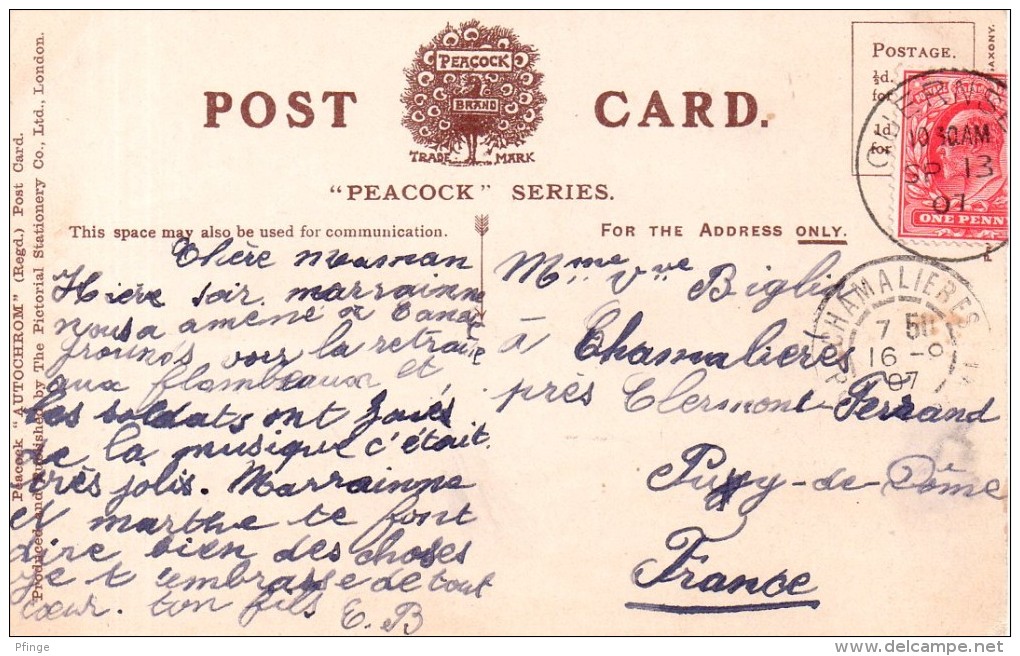 POST CARD.
PEACOCK
BRAND
TRADE MARK
"PEACOCK" SERIES.
POSTAGE.
½d.
1d.
for
ONE PENNY
GUERNSEY
10 30 AM
SP 13
07
This space may also be used for communication.
FOR THE ADDRESS ONLY.
Peacock "AUTOCHROM" (Regd.) Post Card.
Produced and Published by The Pictorial Stationery Co., Ltd., London.
AXONY.
Chère maman
Hière soir marrainne
nous a amené a Canac
frounds voir la retraite
aux flambeaux et
les soldats ont joués
de la musique c'était
très jolis. Marrainne
et marthe te font
dire bien des choses
Je t'embrasse de tout
cœur. ton fils
E. B
Mme Vve Biglio
à Chamalières
près Clermont-Ferrand
Puy-de-Dôme
France
CHAMALIERES
7
16 - 9
07
Pfinge
delcampe.net